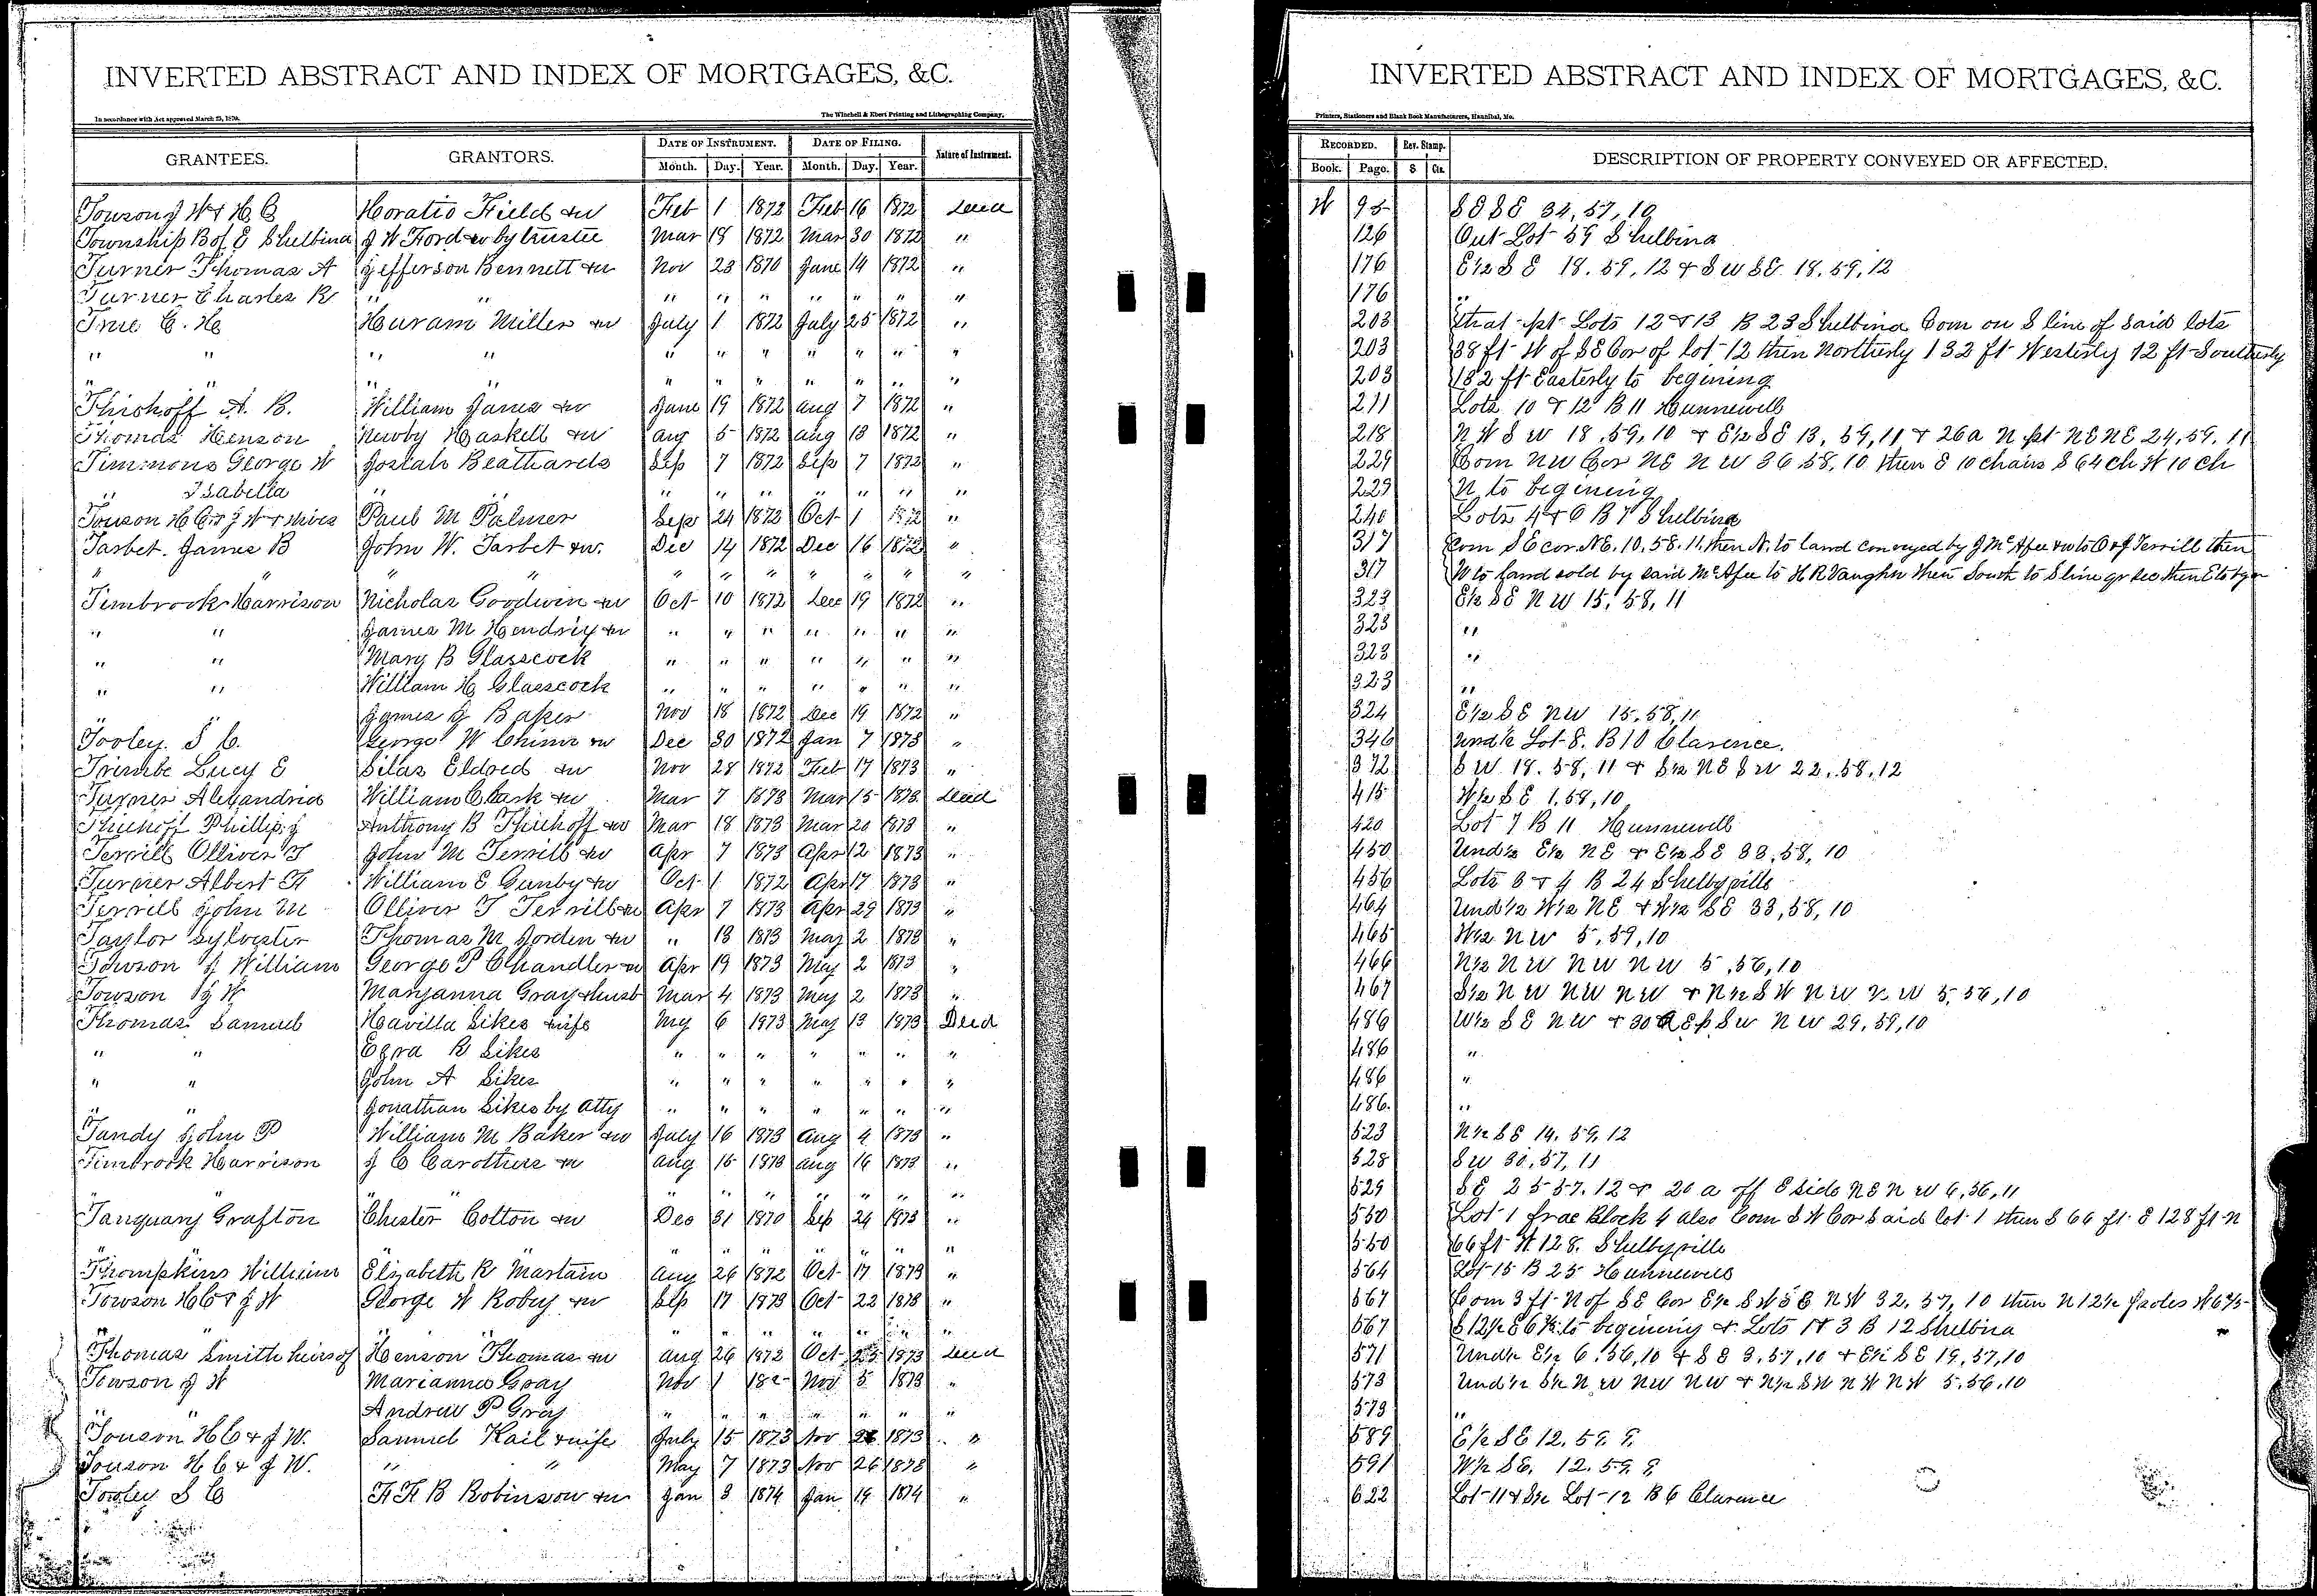 INVERTED ABSTRACT AND INDEX OF MORTGAGES, &C.
In accordance with Act approved March 25, 1870. The Winchell & Ebert Printing and Lithographing Company,
GRANTEES. GRANTORS. DATE OF INSTRUMENT. DATE OF FILING. Nature of Instrument.
Month. Day. Year. Month. Day. Year.
Towson J W & H C Horatio Field & w Feb 1 1872 Feb 16 1872 Deed
Township B of E Shelbina J W Ford & w by trustee Mar 19 1872 Mar 30 1872 "
Turner Thomas A Jefferson Bennett & w Nov 23 1870 June 14 1872 "
Turner Charles R " " " " " " " " "
True C. H. Huram Miller & w July 1 1872 July 25 1872 "
" " " " " " " " " " "
" " " " " " " " " " "
Thichoff A. B. William Janes & w June 19 1872 Aug 7 1872 "
Thomas Henson Newby Haskell & w Aug 5 1872 Aug 13 1872 "
Timmons George W Josiah Beathards Sep 7 1872 Sep 7 1872 "
" Isabella " " " " " " " "
Towson H C & J W & wives Paul M Palmer Sep 24 1872 Oct 1 1872 "
Tarbet James B John W. Tarbet & w. Dec 14 1872 Dec 16 1872 "
" " " " " " " " "
Timbrook Harrison Nicholas Goodwin & w Oct 10 1872 Dec 19 1872 "
" " James M Hendrix & w " " " " " " "
" " Mary B Glasscock " " " " " " "
" " William H Glasscock " " " " " " "
" " James J Baker Nov 18 1872 Dec 19 1872 "
Tooley S C. George W Chinn & w Dec 30 1872 Jan 7 1873 "
Trimbe Lucy E Silas Eldred & w Nov 28 1872 Feb 17 1873 "
Turner Alexandria William Clark & w Mar 7 1873 Mar 15 1873 Deed
Thiehoff Phillip J Anthony B Thiehoff & w Mar 18 1873 Mar 20 1873 "
Terrill Olliver T John M Terrill & w Apr 7 1873 Apr 12 1873 "
Turner Albert F William E Gunby & w Oct 1 1872 Apr 17 1873 "
Terrill John M Olliver T Terrill & w Apr 7 1873 Apr 29 1873 "
Taylor Sylvester Thomas M Jorden & w " 13 1873 May 2 1873 "
Towson J William George P Chandler & w Apr 19 1873 May 2 1873 "
Towson J W Maryanna Gray & husb Mar 4 1873 May 2 1873 "
Thomas Samuel Havilla Sikes & wife My 6 1873 May 13 1873 Deed
" " Ezra R Sikes " " " " " " "
" " John A Sikes " " " " " " "
" " Jonathan Sikes by Atty " " " " " " "
Tandy John P William M Baker & w July 16 1873 Aug 4 1873 "
Timbrook Harrison J C Carothers & w Aug 15 1873 Aug 16 1873 "
" " " " " " " " " " "
Tanquary Grafton Chester Cotton & w Dec 31 1870 Sep 24 1873 "
" " " " " " "
Thompkins William Elizabeth R Mastain Aug 26 1872 Oct 17 1873 "
Towson H C & J W George W Robey & w Sep 17 1873 Oct 22 1873 "
" " " " " " " " "
Thomas Smith heirs of Henson Thomas & w Aug 26 1872 Oct 25 1873 Deed
Towson J W Marianna Gray Nov 1 187- Nov 5 1873 "
" Andrew P Gray " " " " " " "
Towson H C & J W. Samuel Kail & wife July 15 1873 Nov 26 1873 "
Towson H C & J W. " " May 7 1873 Nov 26 1873 "
Tooley S C F F B Robinson & w Jan 3 1874 Jan 14 1874 "
INVERTED ABSTRACT AND INDEX OF MORTGAGES, &C.
Printers, Stationers and Blank Book Manufacturers, Hannibal, Mo.
RECORDED. Rev. Stamp. DESCRIPTION OF PROPERTY CONVEYED OR AFFECTED.
Book. Page. $ Cts.
W 95 SE SE 34, 57, 10
126 Out Lot 59 Shelbina
176 E½ S E 18. 59, 12 & S W SE 18. 59, 12
176 "
203 that pt Lots 12 & 13 B 23 Shelbina Com on S line of said lots
203 38 ft W of SE Cor of lot 12 then Northerly 132 ft Westerly 12 ft Southerly
203 132 ft Easterly to begining
211 Lots 10 & 12 B 11 Hunnewell
218 N W S W 18, 59, 10 & E½ SE 13, 59, 11 & 26a N pt NE NE 24, 59. 11
229 Com NW Cor NE N W 36 58, 10 then E 10 chains S 64 ch W 10 ch
229 N to begining
240 Lots 4 & 6 B 7 Shelbina
317 Com S E cor. NE. 10. 58. 11. then N. to land conveyed by J McAfee & w to O & J Terrill then
317 W to land sold by said McAfee to H R Vaughn then South to S line qr sec then E to bgn
323 E½ SE N W 15, 58, 11
323 "
323 "
323 "
324 E½ S E NW 15. 58, 11
346 Und ½ Lot 8. B 10 Clarence.
372 S W 18. 58, 11 & S½ NE S W 22, 58, 12
415 W½ S E 1, 58, 10
420 Lot 7 B 11 Hunnewell
450 Und ½ E½ NE & E½ SE 33, 58, 10
456 Lots 3 & 4 B 24 Shelbyville
464 Und ½ W½ NE & W½ SE 33, 58, 10
465 W½ N W 5, 59, 10
466 N½ N W NW N W 5, 56, 10
467 S½ N W NW NW & N½ S W N W N W 5, 56, 10
486 W½ S E NW & 30 A E p SW N W 29, 59, 10
486 "
486 "
486. "
523 N½ SE 14. 59, 12
528 S W 30, 57, 11
529 SE 25 57. 12 & 20 a off E side NE N W 6, 56, 11
550 Lot 1 frac Block 4 also Com S W Cor said lot 1 then S 66 ft. E 128 ft N
550 66 ft W 128. Shelbyville
564 Lot 15 B 25 Hunnewell
567 Com 3 ft N of SE Cor E½ S W S E N W 32. 57, 10 then N 12½ poles W 6⅖
567 S 12½ E 6⅖ to begining & Lots 1 & 3 B 12 Shelbina
571 Und ½ E½ 6. 56, 10 & S E 3, 57, 10 & E½ SE 19, 57, 10
573 Und ½ S½ N W NW NW & N½ S W N W N W 5. 56. 10
573 "
589 E½ SE 12. 59. 9.
591 W½ SE. 12. 59. 9
622 Lot 11 & S½ Lot 12 B 6 Clarence